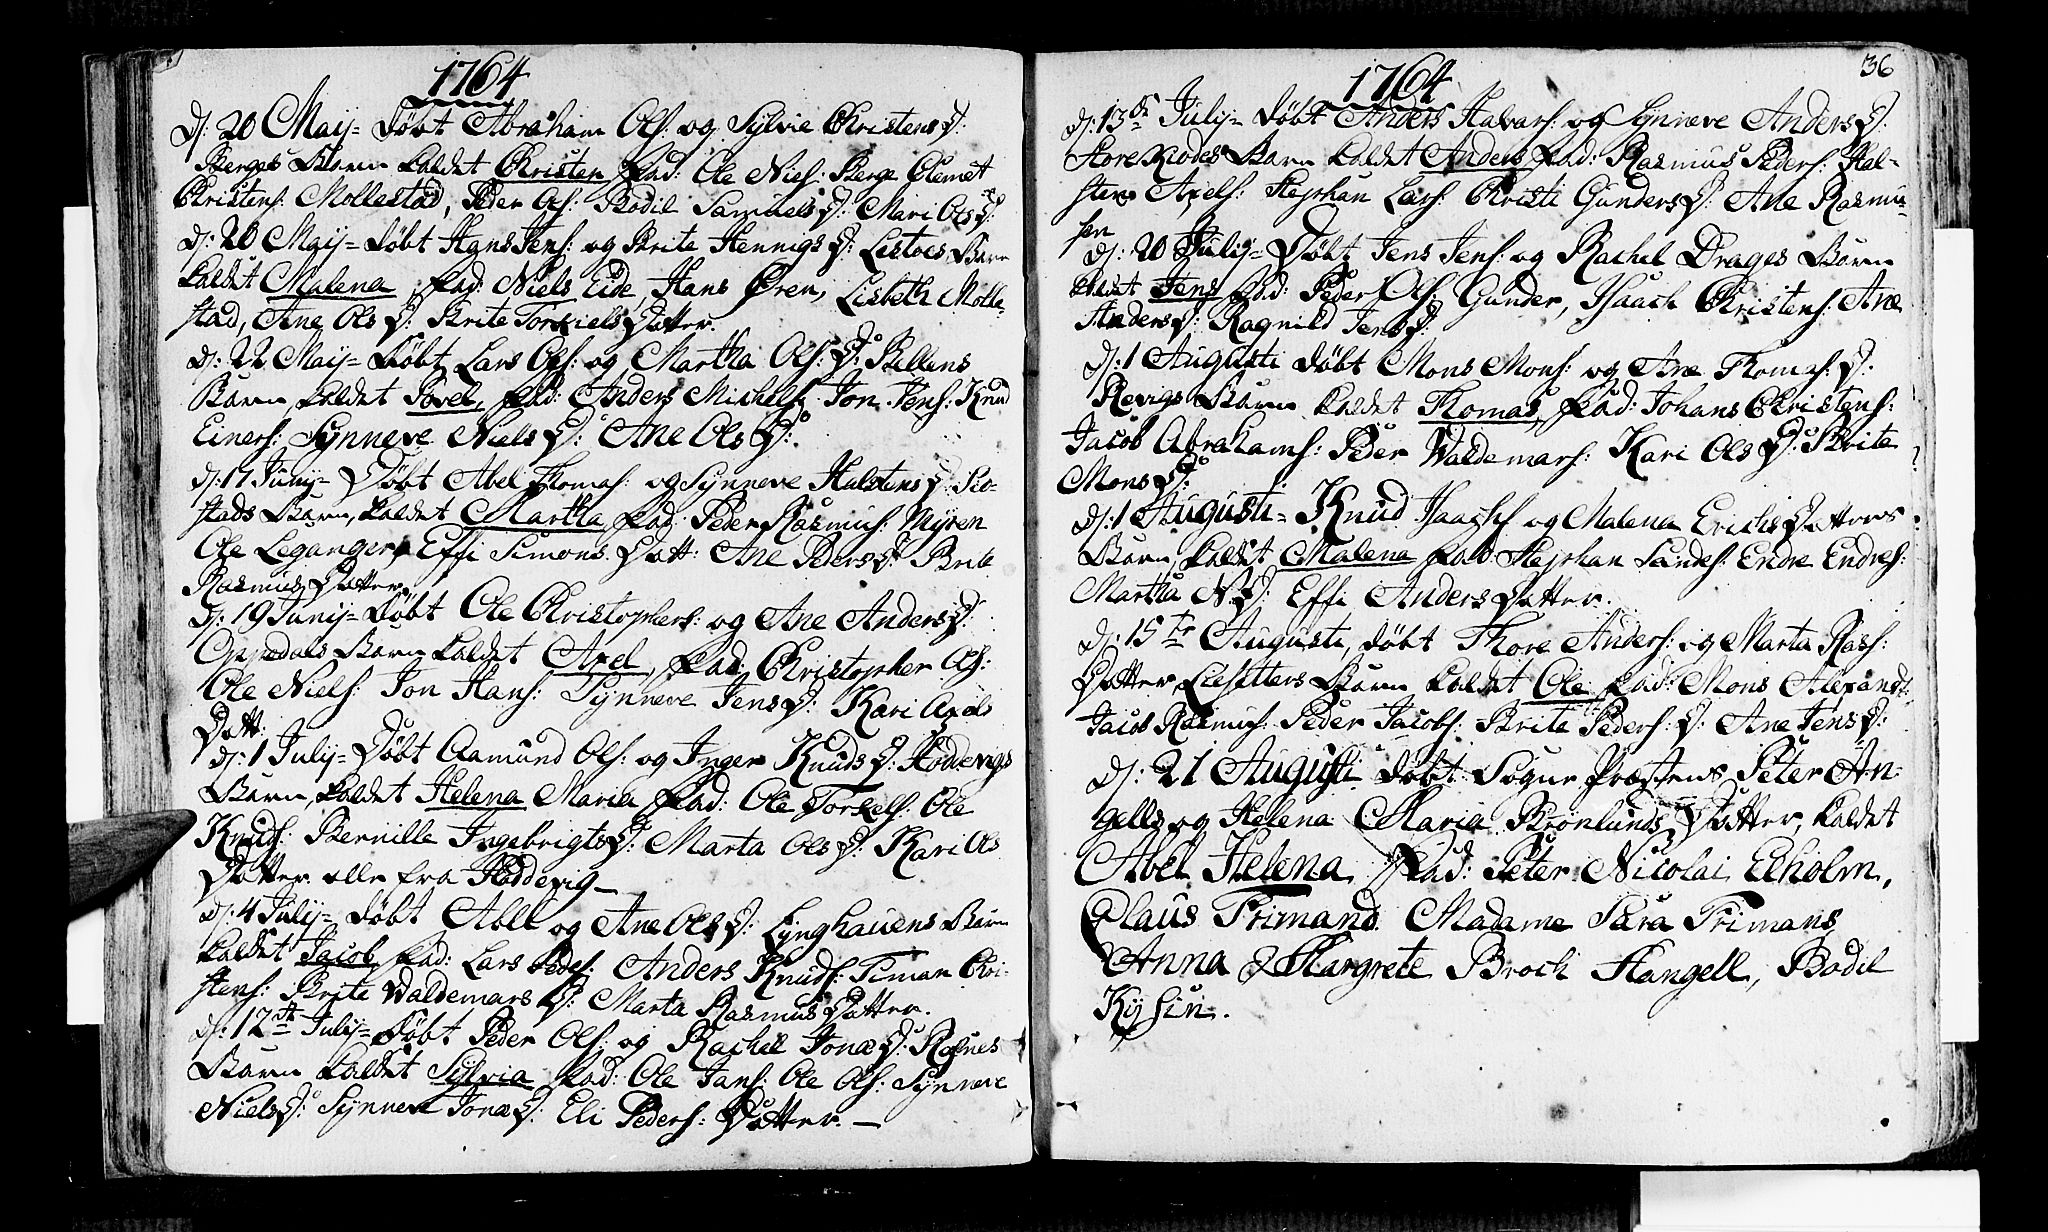 1764
D: 20 Maij= døbt Abraham Ols: og Sylvie Christens D:
Berges Barn kaldet Christen, fad: Ole Niels: Berge Clemet
Christens: Mollestad, Peder Ols: Bodil Samuels D: Mari Ols D:
D: 20 Maij= døbt Hans Jens: og Brite Hennigs D: Barn
kaldet Malena, fad: Niels Eide, Hans Øren, Lisbeth Molle-
stad, Ane Ols D: Brite Torkiels Datter.
D: 22 Maij= døbt Lars Ols: og Martha Ols: D:
Barn, kaldet fad: Anders Michels: Jon Jens: Knud
Einers: Synneve Niels D: Ane Ols D:
D: 17 Junij= Døbt Abel Thomas: og Synneve Halstens D: Sio-
stads Barn, kaldet Martha, fad: Peder Rasmus: Myren
Ole Leganger, Effi Simons Dott: Ane Peders D: Brite
Rasmus Datter.
D: 19 Junij= døbt Ole Christophers: og Ane Anders D:
Oppedals Barn kaldet Axel, fad: Christopher Ols:
Ole Niels: Jon Hans: Synneve Jens D: Kari Axels
Dott:
D: 1 July= Døbt Aamund Ols: og Inger Knuds D: Hoddevigs
Barn, kaldet Helena Maria fad: Ole Torkels: Ole
Knuds: Bernille Ingebrigts D: Marta Ols D: Kari Ols
Datter alle fra Hoddevig—
D: 4 July= døbt Abel og Ane Ols D: Lynghauens Barn
kaldet Jacob, fad: Lars Peders: Anders Knuds: Timan Chri-
stens: Brite Waldemars D: Marta Rasmus Datter.
D: 12te July= døbt Peder Ols: og Rachel Jonæ D:
Barn kaldet Sylvia fad: Ole Jans: Ole Ols: Synneve
Niels D: Synneve Jonæ D: Eli Peders: Datter.—
1764
36
D: 13de July= døbt Anders Halvars: og Synneve Anders D:
Barn kaldet Anders, fad: Rasmus Peders: Hal-
sten Axels: Stephan Lars: Christi Gunders D: Ane Rasmu-
sen
D: 20 July= Døbt Jens Jens: og Rachel Drages Barn
kaldet Jens, fad: Peder Ols: Gunder, Isaach Christens: Ane
Anders D: Ragnild Jens D:
D: 1 Augusti døbt Mons Mons: og Ane Thomas: D:
Revigs Barn kaldet Thomas, fad: Johans Christens:
Jacob Abrahams: Peder Waldemars: Kari Ols D: Brite
Mons D:
D: 1 Augusti= Knud Isachs: og Malena Erichs Datters
Barn, kaldet Malena fad: Stephan Endre Endres:
Martha N. D: Effi Anders Datter.
D: 15te Augusti, døbt Thore Anders: og Marta Rass:
Datter, Liesetters Barn kaldet Ole fad: Mons Alexand:
Jacob Rasmus: Peder Jacobs: Brite Peders: D: Ane Jens D:
D: 21 Augusti døbt: Sogne Præstens Peter An-
gells og Helena Maria Brønlunds Datter, kaldet
Abel Helena, Fad: Peter Nicolai Ekholm,
Claus Frimand. Madame Sara Frimans,
Anna Margrete Broch Hangell, Bodil